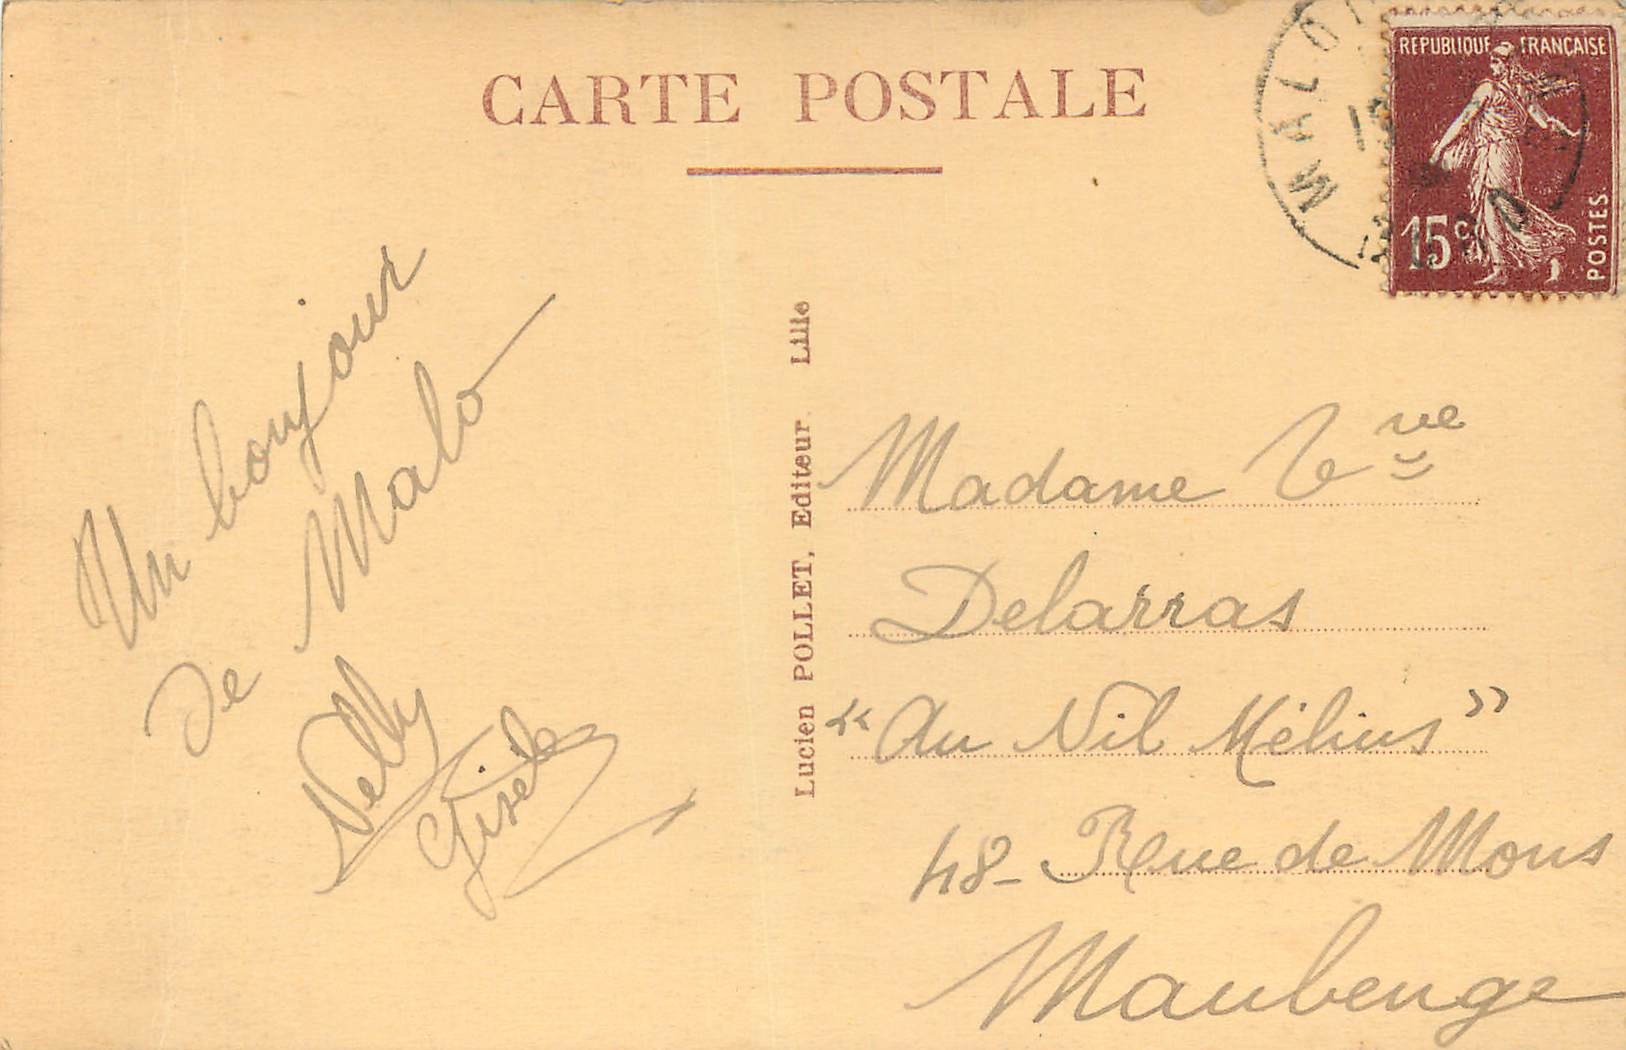 CARTE POSTALE
REPUBLIQUE FRANÇAISE
15c
POSTES
MALO
Un bonjour
de Malo
Nelly
Gisèle
Lucien POLLET, Editeur Lille
Madame Vve
Delarras
"Au Nil Mélius"
48 - Rue de Mons
Maubeuge